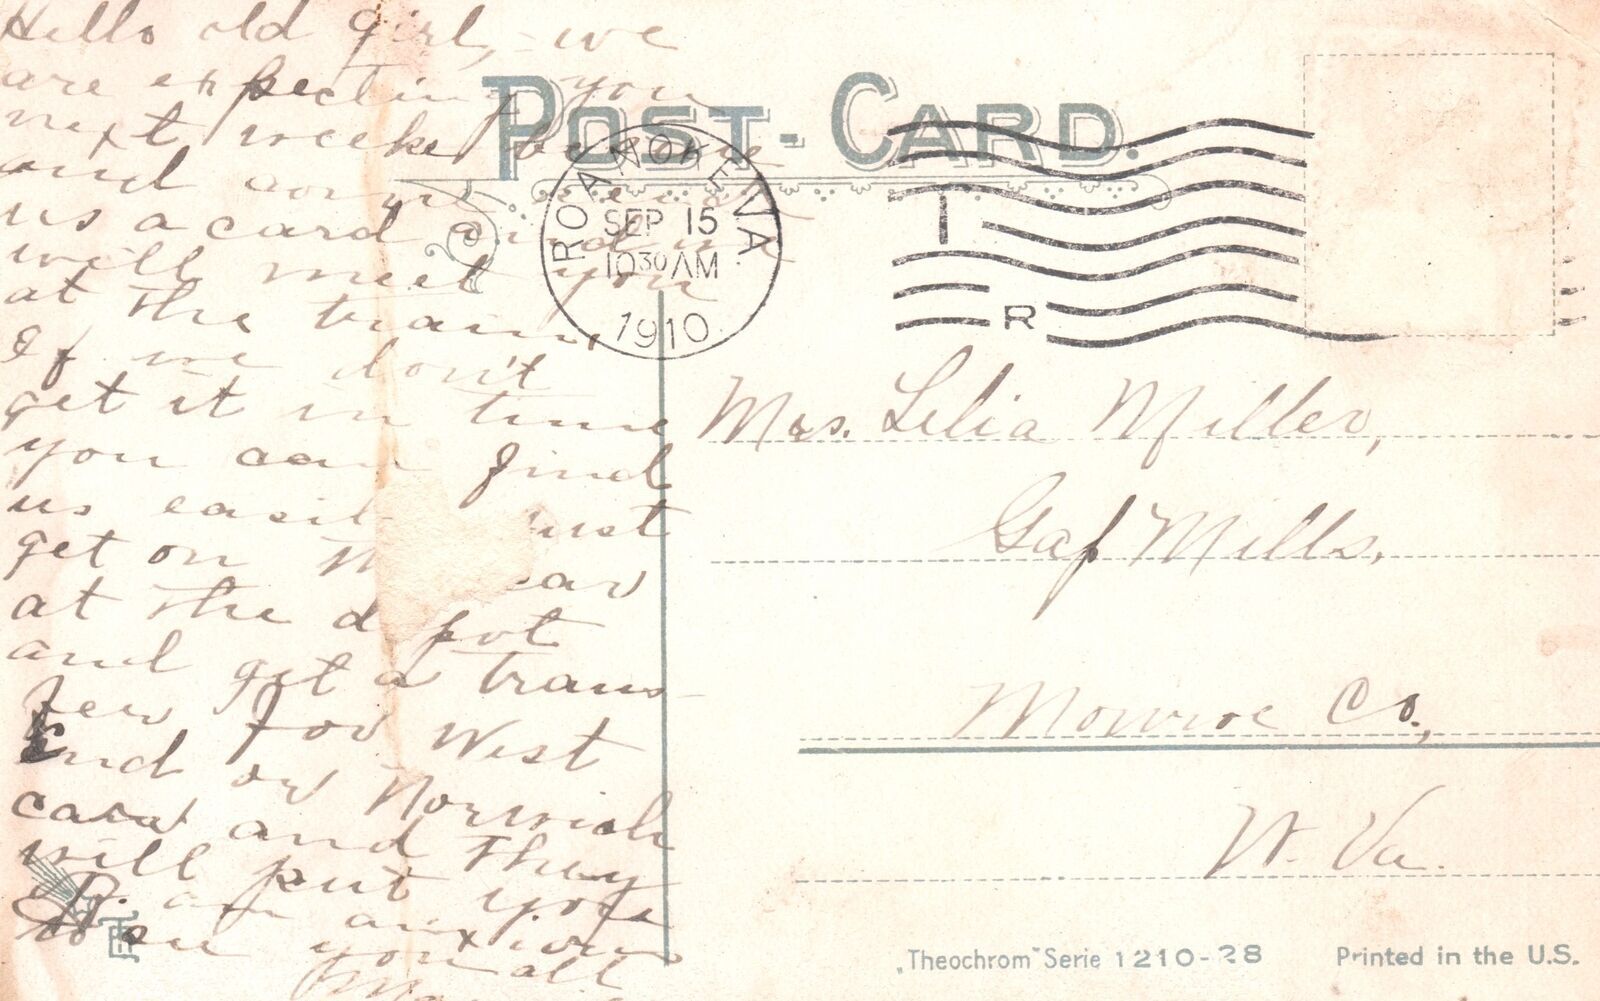 Hello old girl, - we
are expecting you
next week be sure
and
us a card and we
will meet you
at the train,
If we don't
get it in time
you can find
us easil just
get on th car
at the depot
and get a trans-
fer for West
End or Norwich
cars and they
will put you
off. am anxious
to see you all
POST-CARD.
ROANOKE VA
SEP 15
10 30 AM
1910
T
R
Mrs. Lelia Miller,
Gap Mills,
Monroe Co.,
W. Va.
„Theochrom" Serie 1210-28
Printed in the U.S.